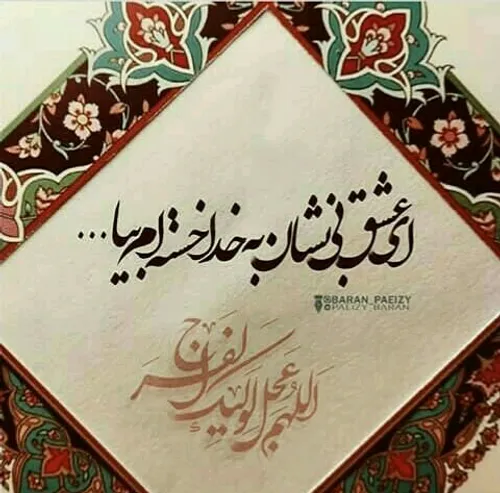 ای عشق بی نشان به خدا خسته ام بیا...
@BARAN_PAEIZY
PAEIZY_BARAN
اللهم عجل لولیک الفرج